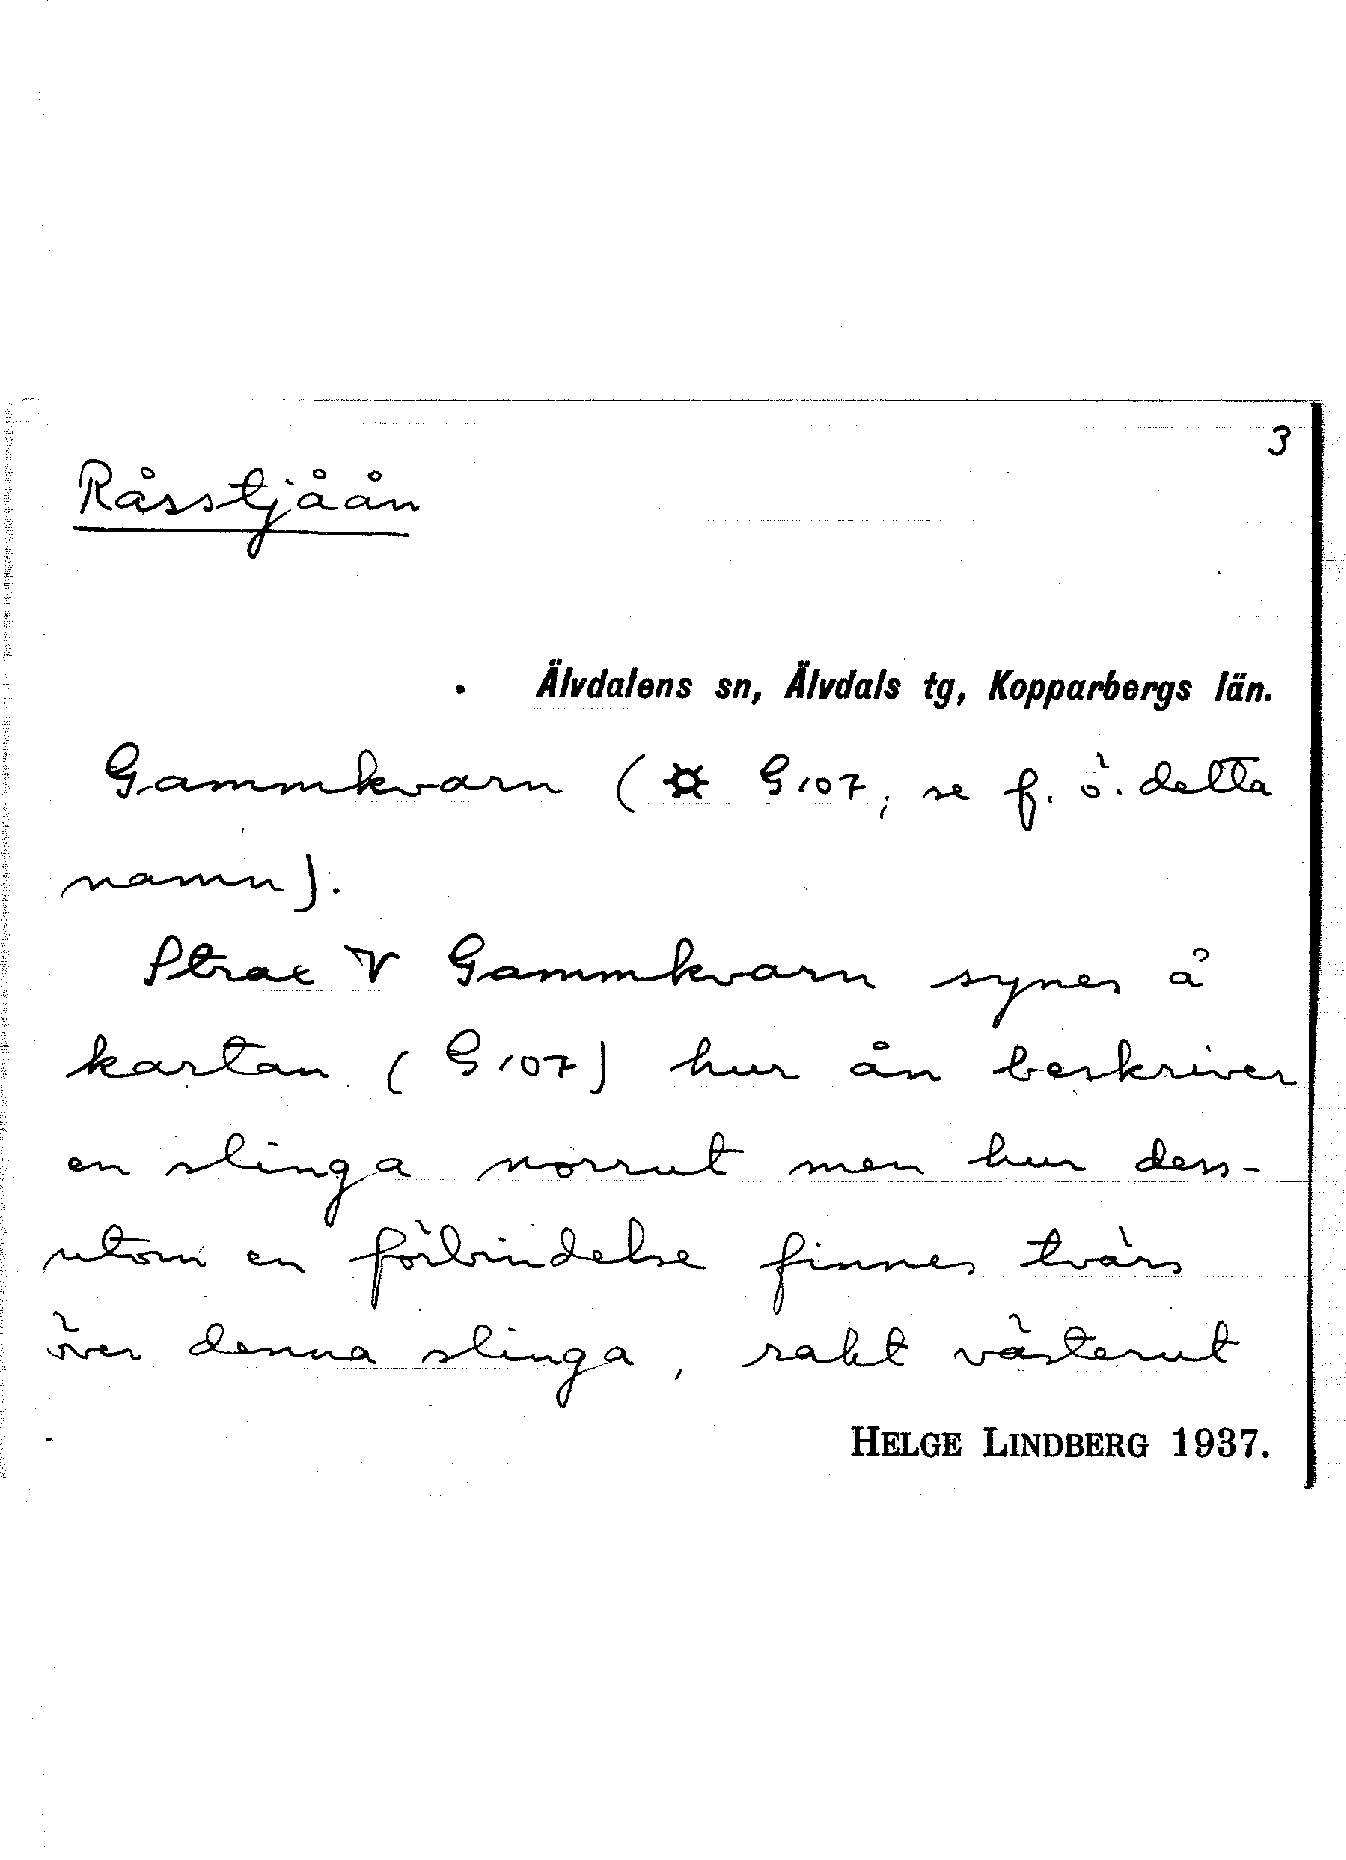 3
Råsstjåån
Älvdalens sn, Älvdals tg, Kopparbergs län.
Gammkvarn (¤ G107, se f. ö. detta
namn).
Strax V Gammkvarn synes å
kartan (G107) hur ån beskriver
en slinga norrut men hur dess-
utom en förbindelse finnes tvärs
över denna slinga, rakt västerut
HELGE LINDBERG 1937.